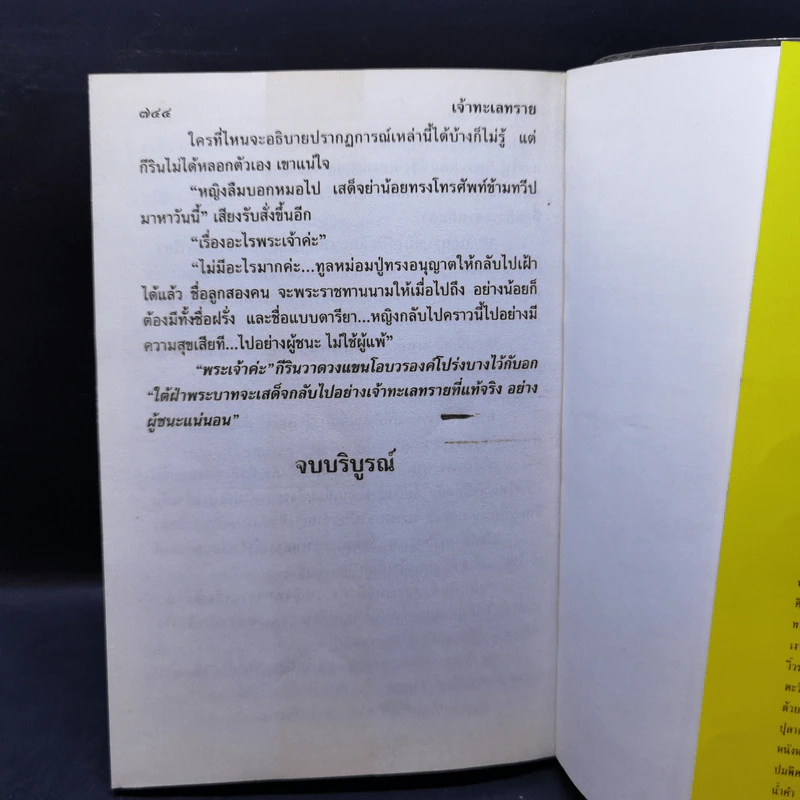 ๗๔๔ เจ้าทะเลทราย
ใครที่ไหนจะอธิบายปรากฏการณ์เหล่านี้ได้บ้างก็ไม่รู้ แต่
กีรินไม่ได้หลอกตัวเอง เขาแน่ใจ
“หญิงลืมบอกหมอไป เสด็จย่าน้อยทรงโทรศัพท์ข้ามทวีป
มาหาวันนี้” เสียงรับสั่งขึ้นอีก
“เรื่องอะไรพระเจ้าค่ะ”
“ไม่มีอะไรมากค่ะ...ทูลหม่อมปู่ทรงอนุญาตให้กลับไปเฝ้า
ได้แล้ว ชื่อลูกสองคน จะพระราชทานนามให้เมื่อไปถึง อย่างน้อยก็
ต้องมีทั้งชื่อฝรั่ง และชื่อแบบดารียา...หญิงกลับไปคราวนี้ไปอย่างมี
ความสุขเสียที...ไปอย่างผู้ชนะ ไม่ใช้ผู้แพ้”
“พระเจ้าค่ะ” กีรินวาดวงแขนโอบวรองค์โปร่งบางไว้กับอก
“ใต้ฝ่าพระบาทจะเสด็จกลับไปอย่างเจ้าทะเลทรายที่แท้จริง อย่าง
ผู้ชนะแน่นอน”
จบบริบูรณ์
ตะวั
ด้วย
ปุลา
หนังห
ปมพิศ
น้ำคำ